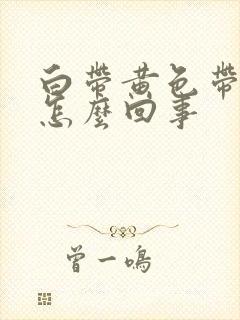 白帶黃色帶
怎麼回事
曾一鳴